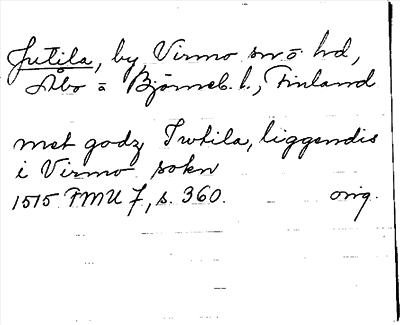 Jutila, by Virmo sn o hd,
Åbo o Björneb. l., Finland
met godz Iwtila, liggendis
i Virmo sokn
1515 FMU 7, s. 360. orig.